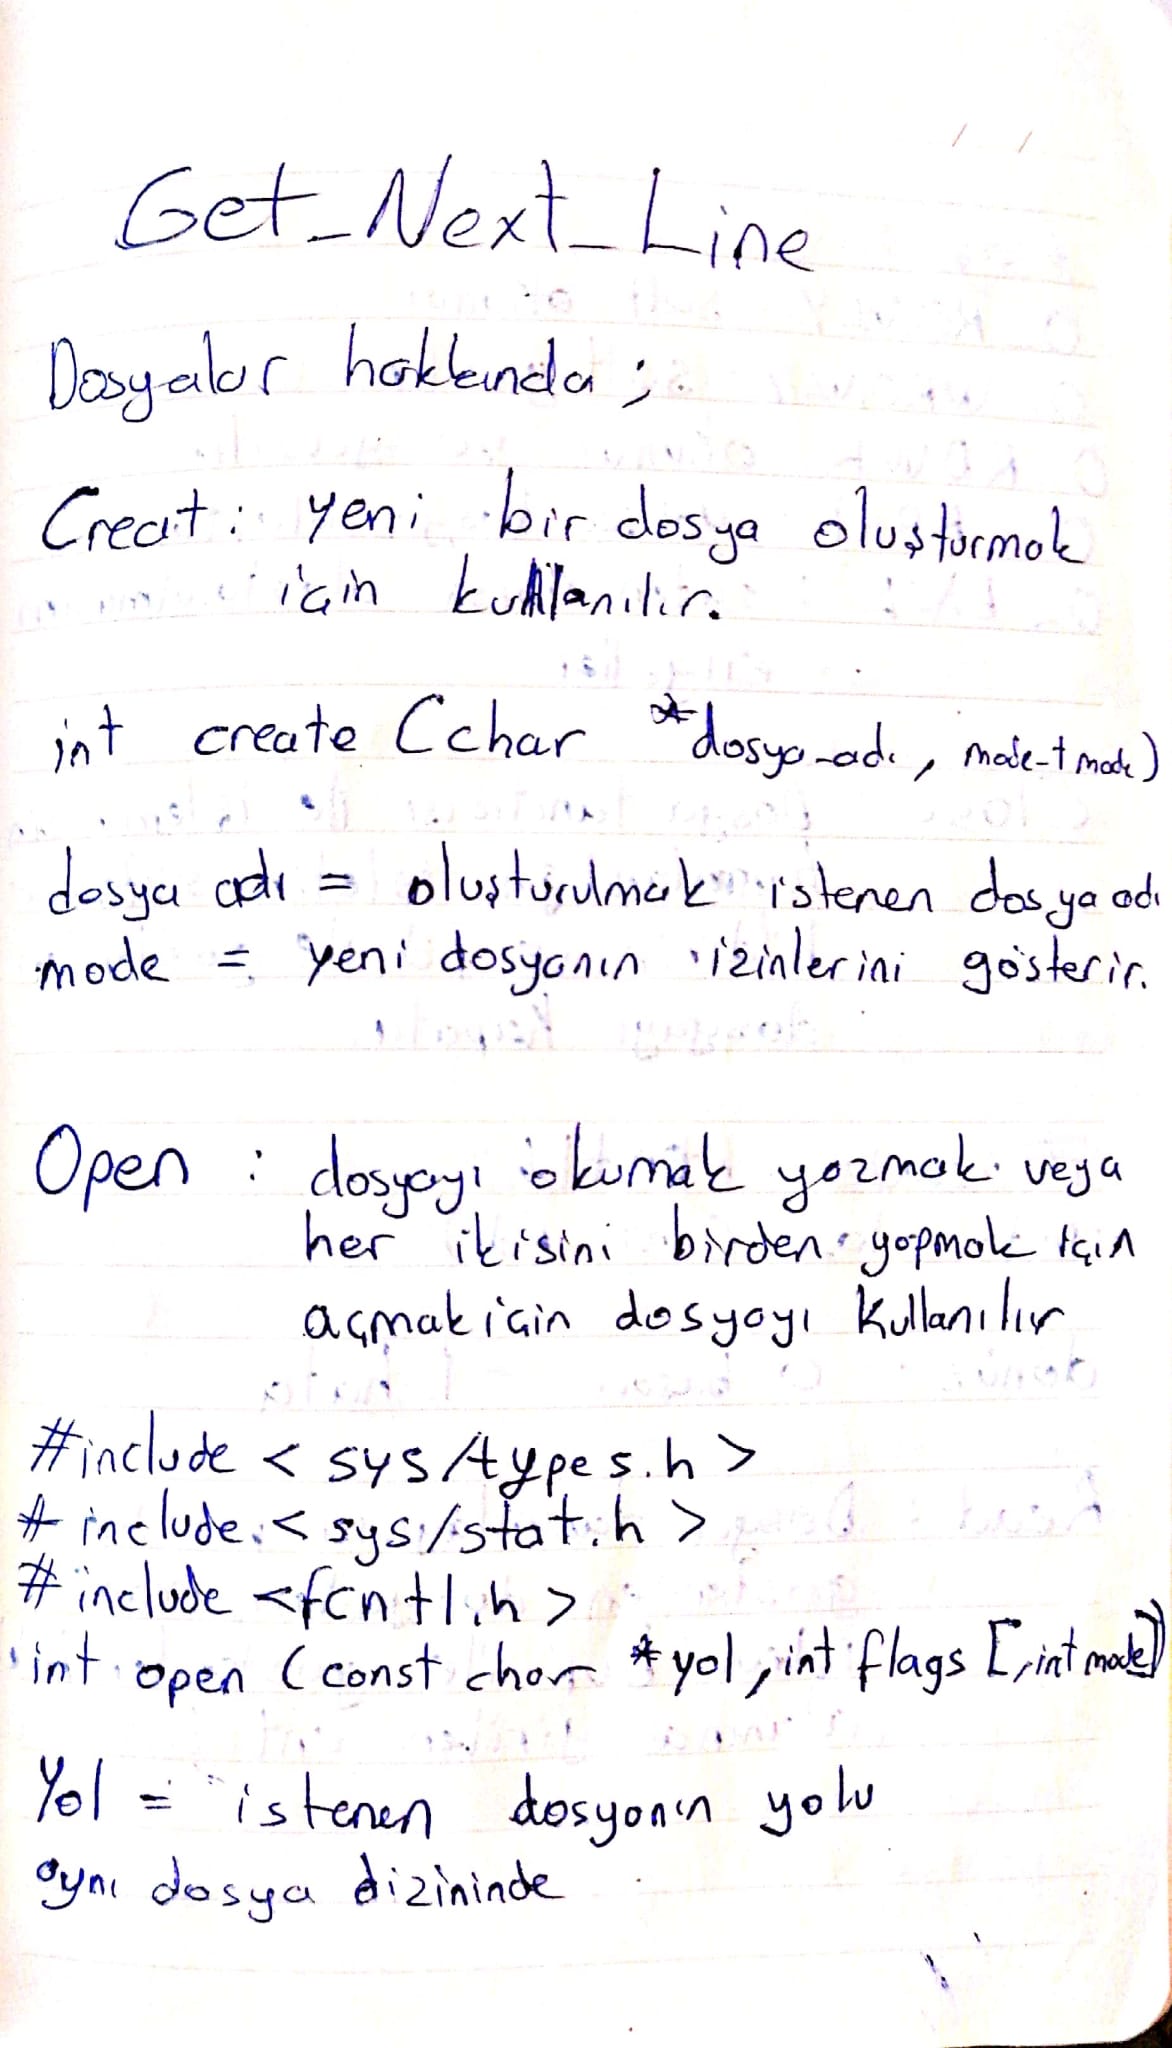 Get_Next_Line
Dosyalar hakkında ;
Creat : yeni bir dosya oluşturmak
için kullanılır.
int create (char *dosya_adı, mode_t mode)
dosya adı = oluşturulmak istenen dosya adı
mode = yeni dosyanın izinlerini gösterir.
Open : dosyayı okumak yazmak veya
her ikisini birden yapmak için
açmak için dosyayı kullanılır
#include < sys/types.h >
# include < sys/stat.h >
# include <fcntl.h >
int open (const char *yol, int flags [,int mode])
Yol = istenen dosyanın yolu
aynı dosya dizininde